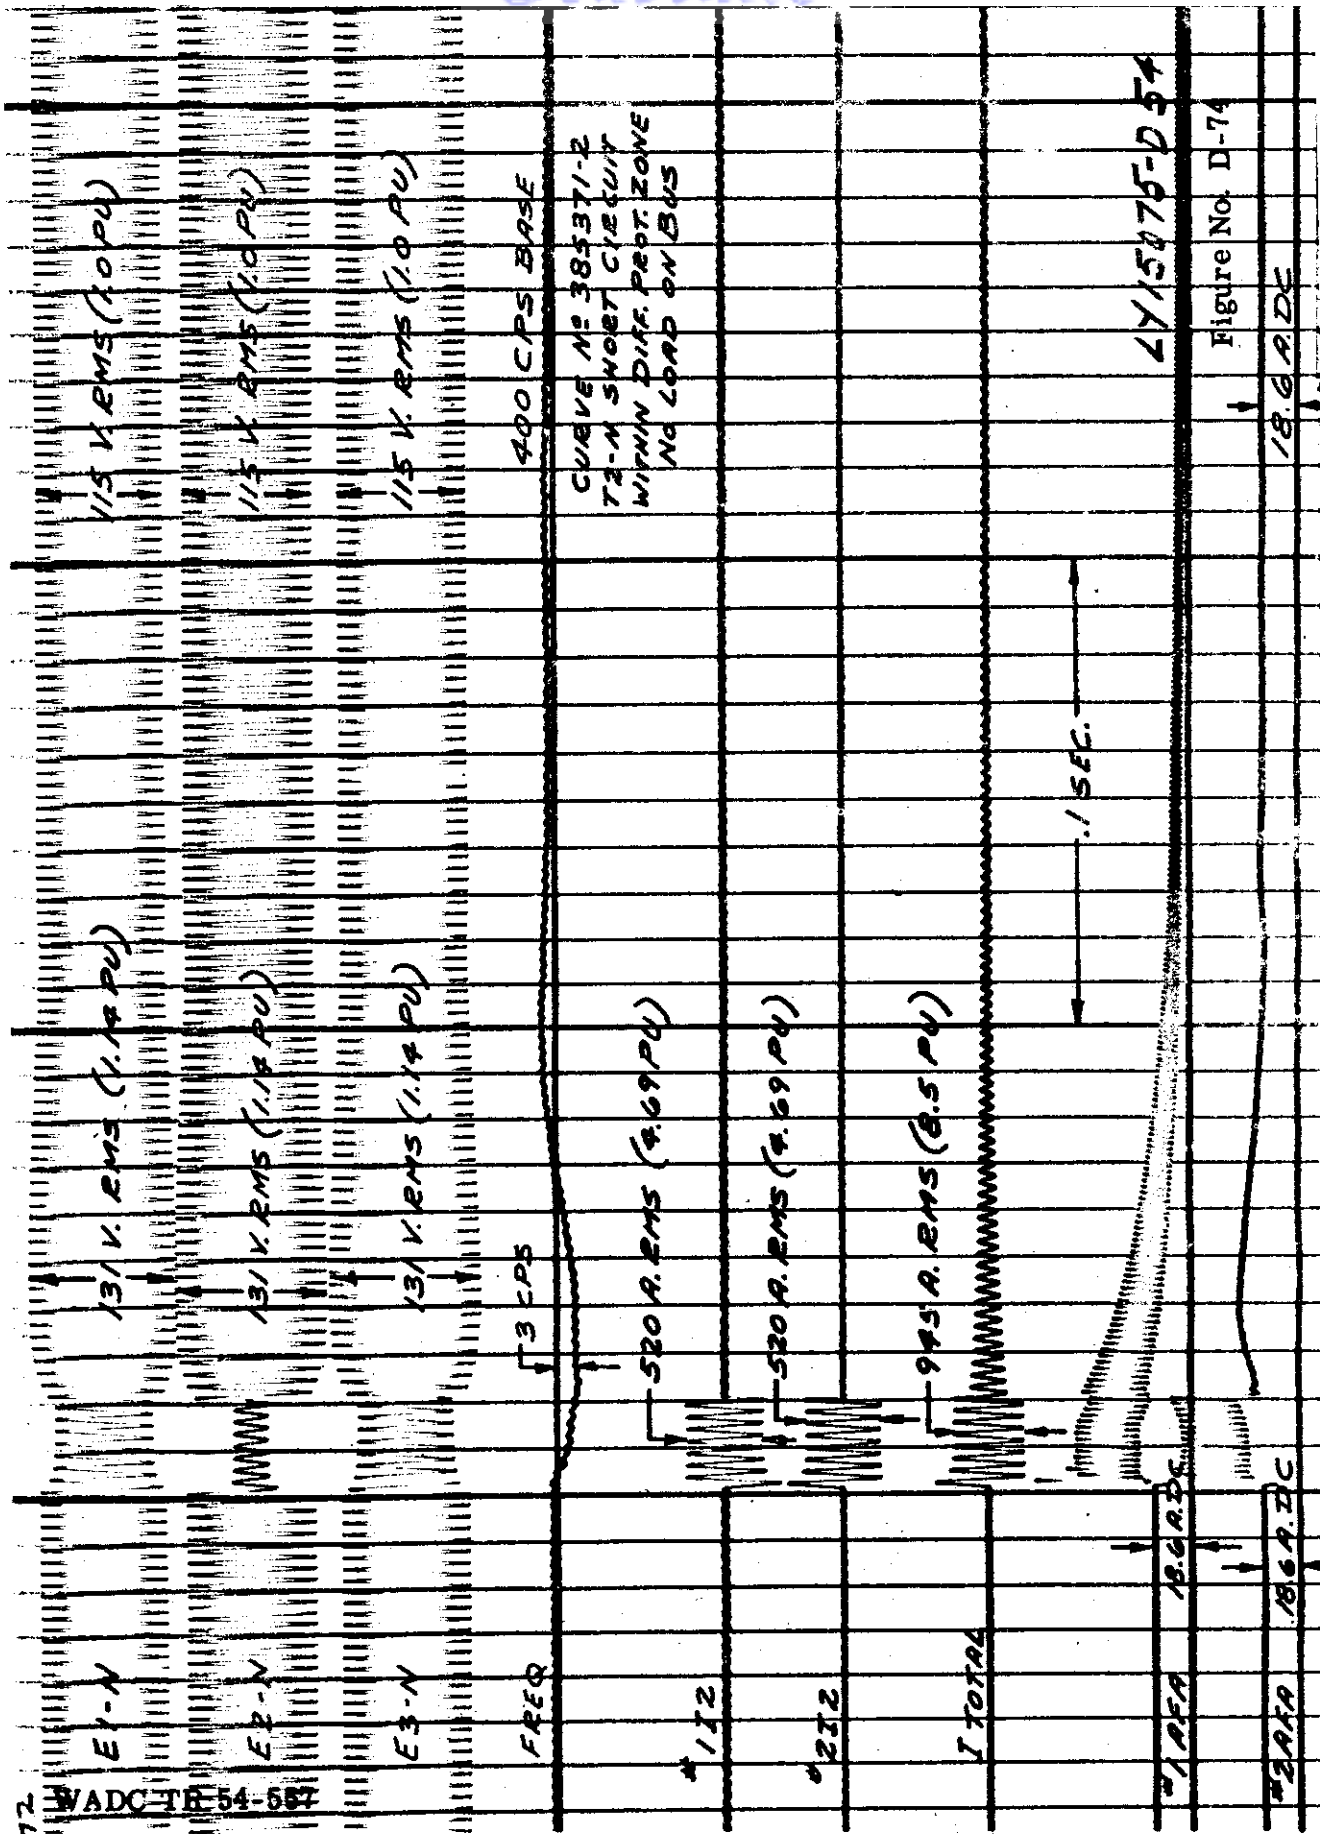 E1-N
131 V. RMS (1.14 PU)
115 V. RMS (1.0 PU)
E2-N
131 V. RMS (1.14 PU)
115 V. RMS (1.0 PU)
E3-N
131 V. RMS (1.14 PU)
115 V. RMS (1.0 PU)
FREQ
3 CPS
400 CPS BASE
CURVE No 385371-2
T2-N SHORT CIRCUIT
WITHIN DIFF. PROT. ZONE
NO LOAD ON BUS
#1I2
520 A. RMS (4.69 PU)
#2I2
520 A. RMS (4.69 PU)
I TOTAL
945 A. RMS (8.5 PU)
.1 SEC.
#1 AFA
18.6 A. DC
LY15075-D54
Figure No. D-74
#2 AFA
18.6 A. DC
18.6 A. DC
WADC TR 54-557